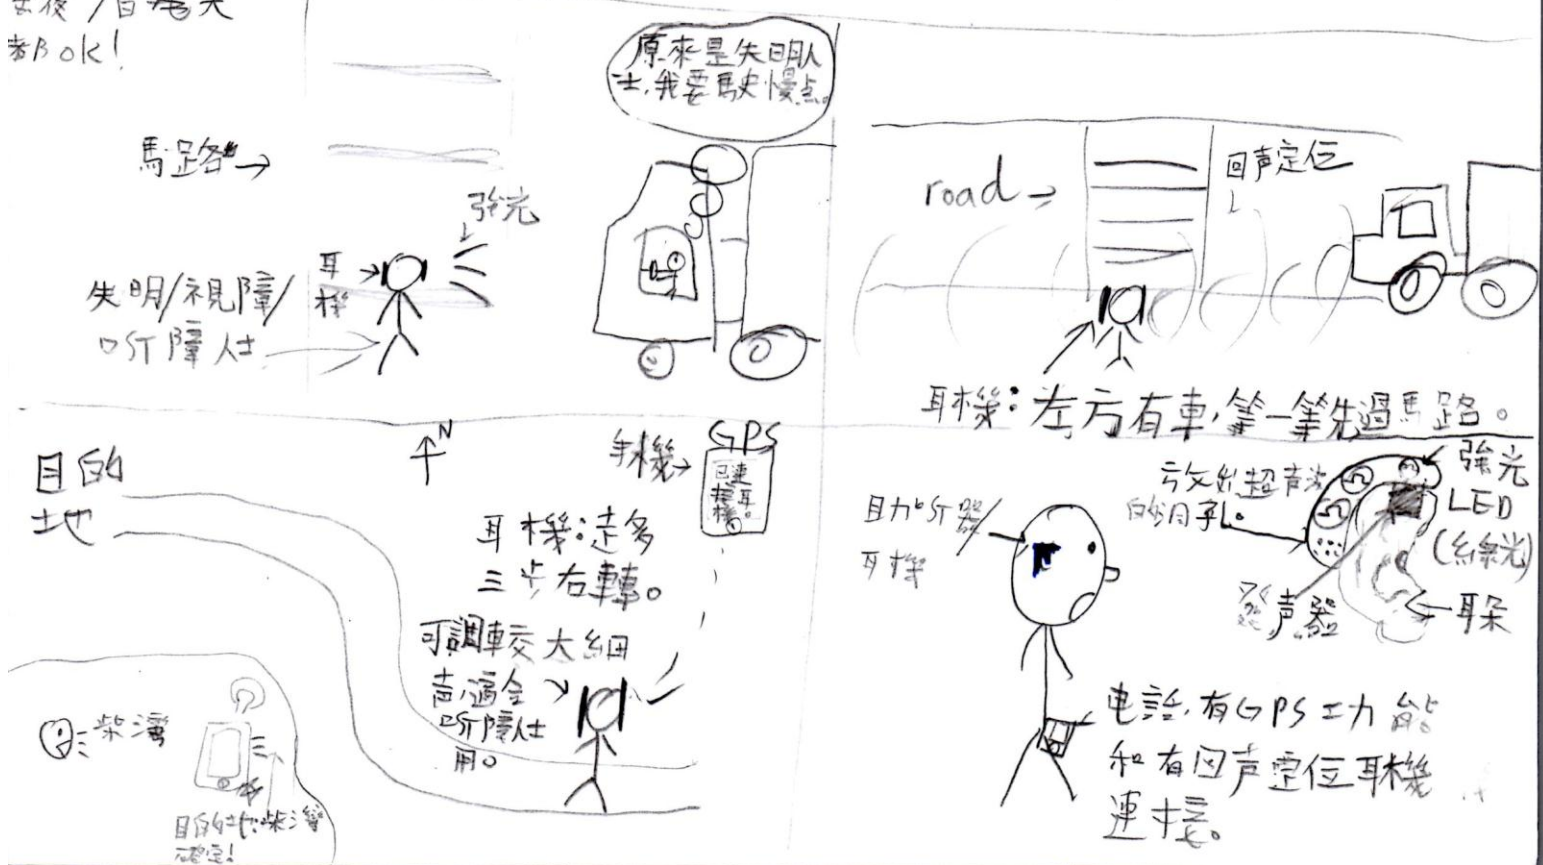 都OK!
馬路
強光
耳
機
失明/視障/
聽障人士
原來是失明人
士,我要駛慢点。
road
回声定位
耳機:左方有車,等一等先過馬路。
目的
地
N
手機
GPS
已連
接耳
機。
耳機:走多
三步右轉。
可調較大細
声,適合
聽障人士
用。
柴灣
目的地:柴灣
確定!
助听器/
耳機
放出超声波
的月孔。
強光
LED
(綠光)
發声器
耳朵
电話,有GPS功能
和有回声定位耳機
連接。